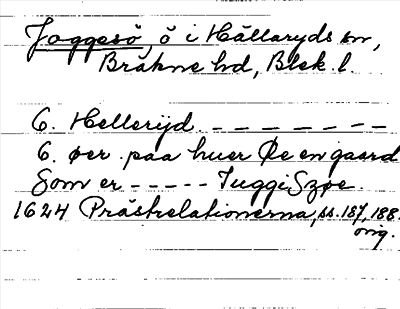 Joggesö, ö i Hällaryds sn,
Bräkne hd, Blek. l.
6. Hellerijd - - - - - - -
6. øer paa huer Øe en gaard
Som er - - - - - IuggiSzøe.
1624 Prästrelationerna, ss. 187, 188.
orig.